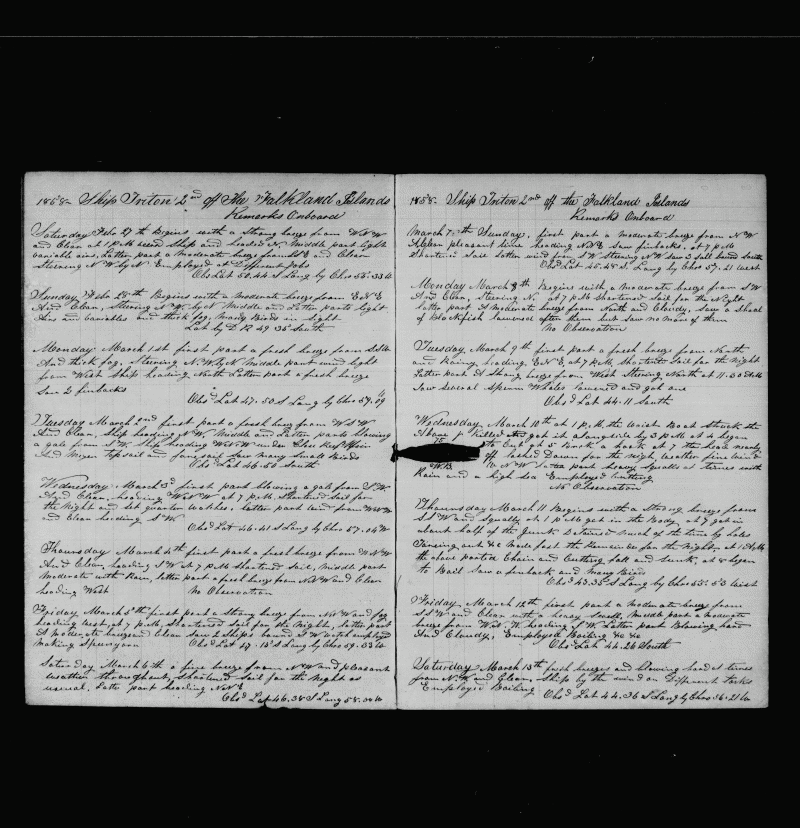 1858 Ship Triton 2nd off the Falkland Islands
Remarks Onboard
Saturday Feb 27th Begins with a Strong breeze from WNW
and Clear at 1 PM seen Ship and headed N. Middle part light
variable airs, Latter part a moderate breeze from and Clear
Steering N W by N Employed at Different Jobs
Obsd Lat 50.44 S Lang by Chro 55.33 W
Sunday Feb 28th Begins with a moderate breeze from ENE
And Clear, Steering N W by N Middle and Latter parts light
Airs and variables and thick fog, Many Birds in sight
Lat by D R 49 35 South
Monday March 1st first part a fresh breeze from
And thick fog, Steering N W by N Middle part wind light
from West Ship heading North Latter part a fresh breeze
Saw 2 finbacks
Obsd Lat 47.50 S Lang by Chro 57.09
Tuesday March 2nd first part a fresh breeze from WSW
And Clear, Ship heading NW, Middle and Latter parts blowing
a gale from S W, Ship heading WNW under Close Reef Main
And Mizen topsail and foresail saw many Small Birds
Obsd Lat 46.50 South
Wednesday March 3d first part blowing a gale from S W
And Clear, heading WNW at 7 PM. Shortened Sail for
the Night and Set quarter Watches, Latter part wind from WNW
and Clear heading S W
Obsd Lat 46.41 S Lang by Chro 57.04 W
Thoursday March 4th first part a fresh breeze from WNW
And Clear, heading S W at 7 PM Shortened Sail, Middle part
Moderate with Rain, Latter part a fresh breeze from NNW and Clear
heading West No Observation
Friday March 5th first part a Strong breeze from NNW and fog
heading West, at 7 PM, Shortened Sail for the Night, Latter part
A moderate breeze and Clear Saw 2 Ships bound S W watch employed
Making Spunyarn Obsd Lat 47.13 S Lang by Chro 59.33 W
Saturday March 6th a fine breeze from NW and pleasant
weather throughout, Shortened Sail for the Night as
usual, Latter part heading NNE
Obsd Lat 46.38 S Lang 58.30 W
1858 Ship Triton 2nd off the Falkland Islands
Remarks Onboard
March 7th Sunday, first part a moderate breeze from NW
A Clear pleasant time heading NNE Saw finbacks, at 7 PM
Shortened Sail Latter wind from S W Steering N W Saw 2 Sail bound South
Obsd Lat 45.48 S Lang by Chro 57.21 West
Monday March 8th Begins with a moderate breeze from S W
And Clear, Steering N. at 7 PM Shortened Sail for the Night
Latter part A moderate breeze from North and Cloudy, Saw a Shoal
of Blackfish lowered after them but saw no more of them
No Observation
Tuesday March 9th first part a fresh breeze from North
and Rainy heading ENE at 7 PM Shortened Sail for the Night
Latter part A Strong breeze from West Steering North at 11.30 AM
Saw several Sperm Whales lowered and got one
Obsd Lat 44.11 South
Wednesday March 10th at 1 PM the Waist Boat Struck the
Killed got it alongside by 3 PM At 4 began
75 to Cut got 5 Broke a hook at 7 the head nearly
off lashed Down for the night, Weather fine wind
Bl WB N W Latter part heavy Squalls at times with
Rain and a high Sea Employed Cutting
No Observation
Thoursday March 11 Begins with a Strong breeze from
SSW and Squally at 1 PM got in the Body, at 7 got in
about half of the Junk Detained much of the time by hales
Parting out &c Made fast the Remainder for the Night, at 1 AM
the above parted Chain and Cutting fall and Sunk, at 8 began
to Boil Saw a finback and Many Birds
Obsd 43.35 S Lang by Chro 55.53 West
Friday March 12th first part a moderate breeze from
SSW and Clear with a heavy Swell, Middle part a moderate
breeze from heading S W. Latter part Blowing hard
And Cloudy, Employed Boiling &c &c
Obsd Lat 44.26 South
Saturday March 13th fresh breezes and blowing hard at times
from and Clear, Ship by the wind on Different tacks
Employed Boiling Obsd Lat 44.36 S Lang by Chro 56.21 W